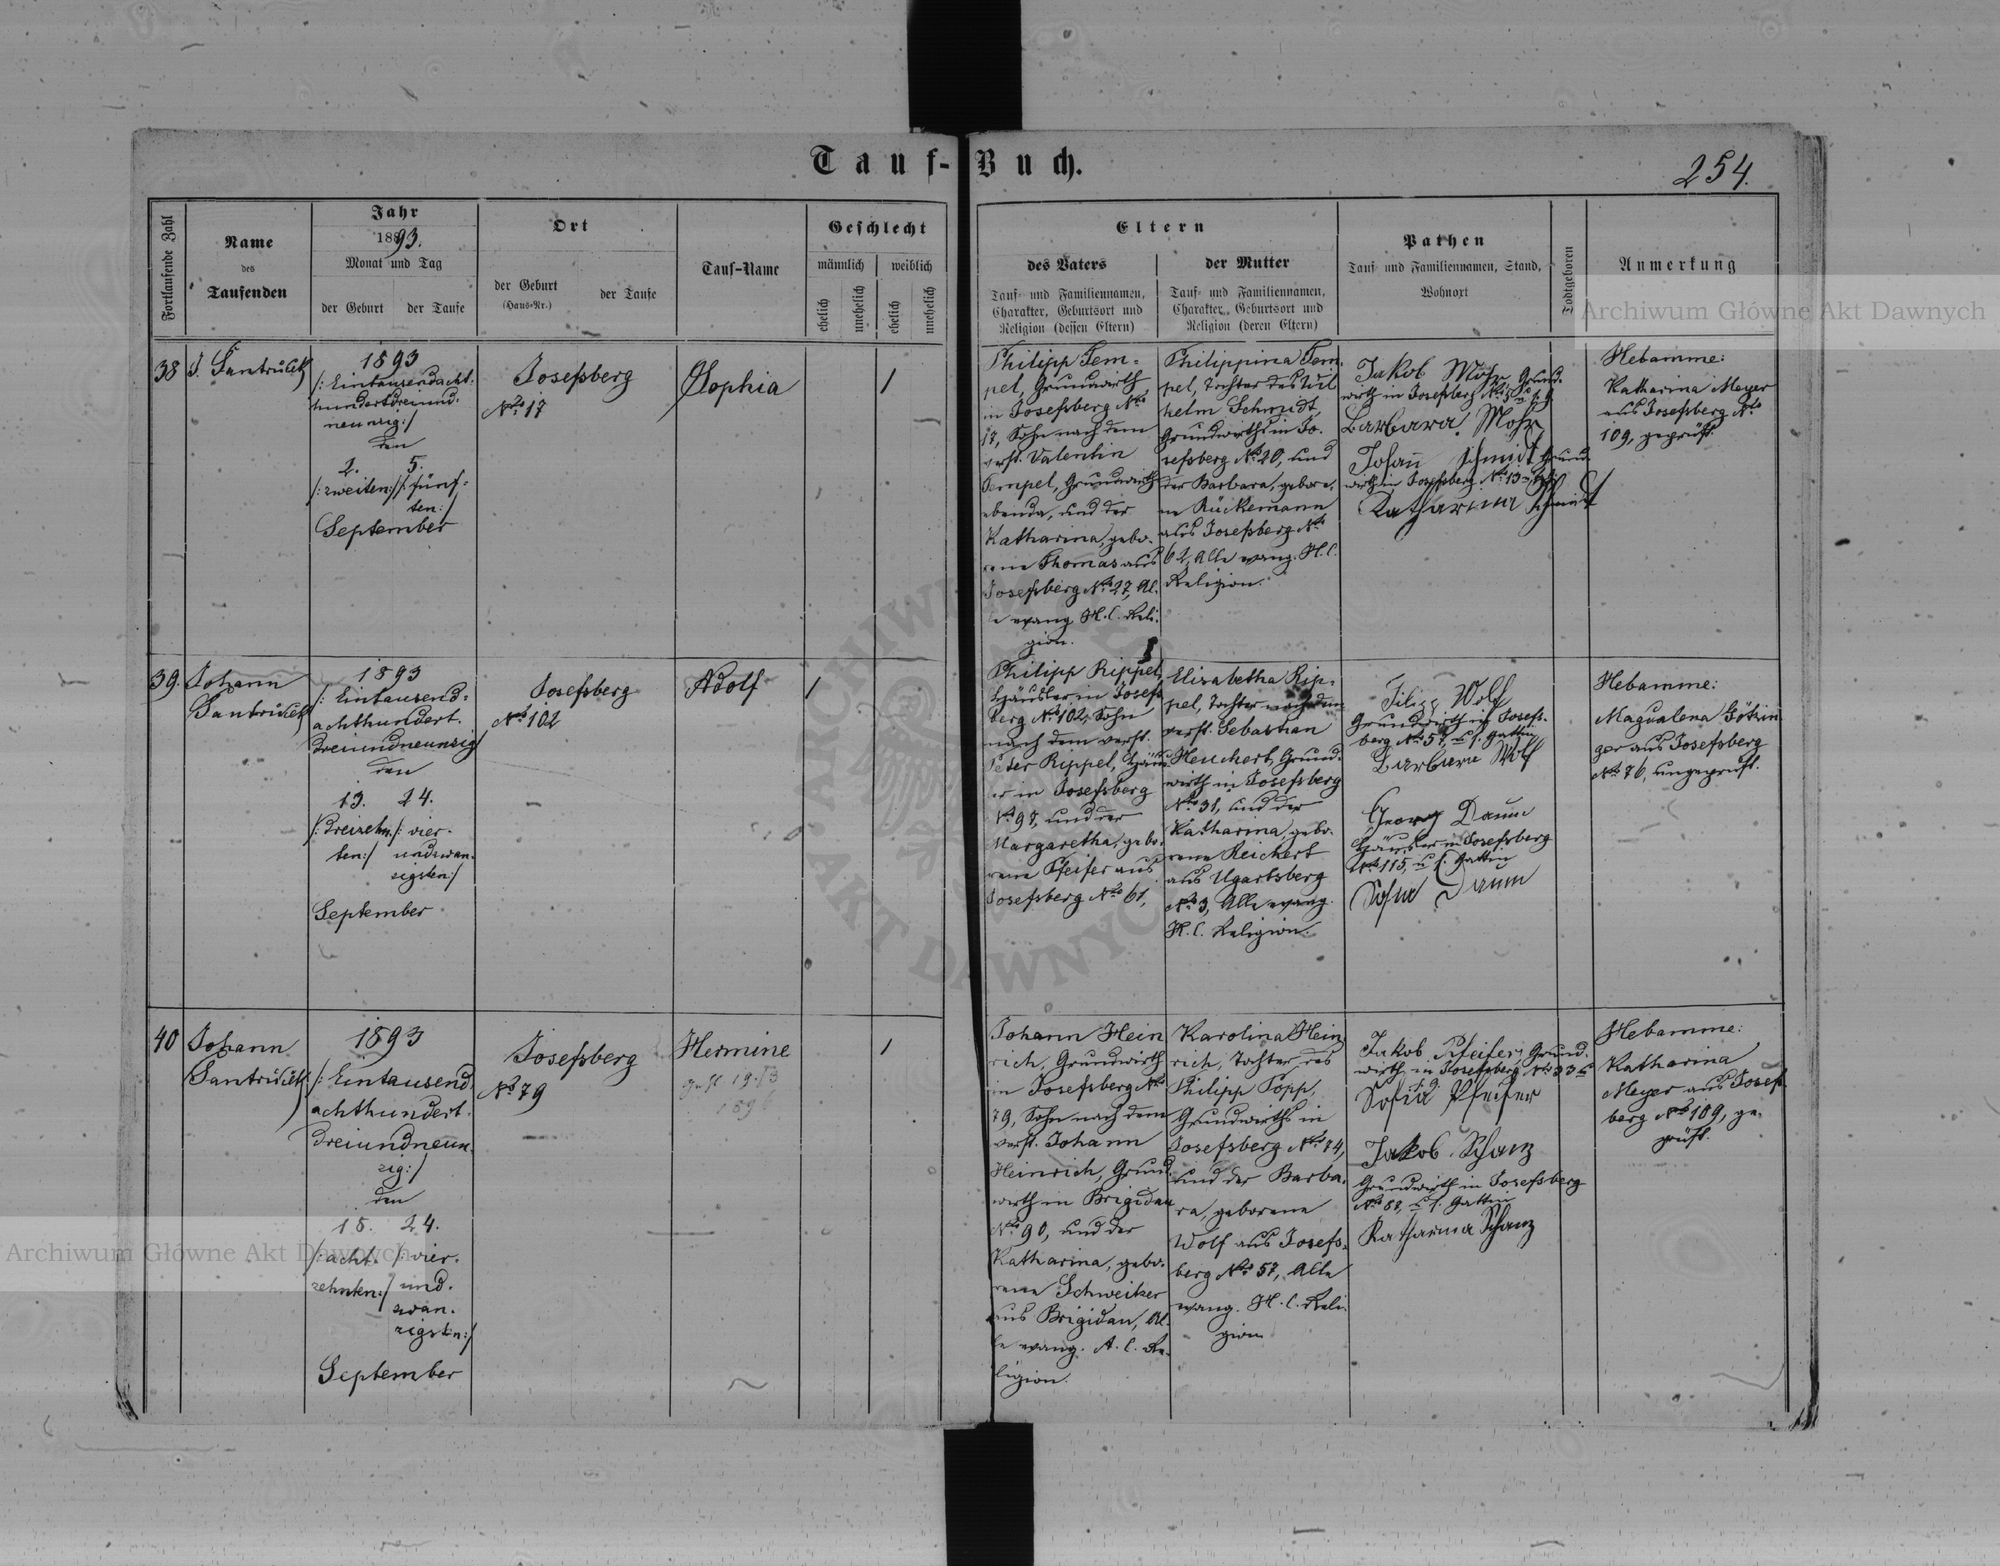 Tauf-Buch.
254.
Fortlaufende Zahl
Name
des
Taufenden
Jahr
1893.
Monat und Tag
der Geburt
der Taufe
Ort
der Geburt
(Haus-Nr.)
der Taufe
Tauf-Name
Geschlecht
männlich
weiblich
ehelich
unehelich
ehelich
unehelich
Eltern
des Vaters
Tauf- und Familiennamen,
Charakter, Geburtsort und
Religion (dessen Eltern)
der Mutter
Tauf- und Familiennamen,
Charakter, Geburtsort und
Religion (deren Eltern)
Pathen
Tauf- und Familiennamen, Stand,
Wohnort
Todtgeboren
Anmerkung
38
J. Santruček
1893
/: Eintausendacht-
hundertdreiund-
neunzig :/
den
2. 5.
/: zweiten :/ /: fünf-
ten :/
September
Josefsberg
Nro 17
Sophia
1
Philipp Tem-
pel, Grundwirth
in Josefsberg Nro
17, Sohn nach dem
verst. Valentin
Tempel, Grundwirth
ebenda, und der
Katharina, gebo-
rene Thomas aus
Josefsberg Nro 27, Al-
le evang. H. C. Reli-
gion.
Philippina Tem-
pel, Tochter des Wil
helm Schmidt,
Grundwirths in Jo-
sefsberg Nro 20, und
der Barbara, gebore-
ne Rückemann
aus Josefsberg Nro
62, Alle evang. H. C.
Religion.
Jakob Mohr Grund-
wirth in Josefsberg
Barbara Mohr
Johann Schmidt Grund-
wirth in Josefsberg Nro 13
Katharina Schmidt
Hebamme:
Katharina Meyer
aus Josefsberg Nro
109, geprüft.
39.
Johann
Santruček
1893
/: Eintausend-
achthundert-
dreiundneunzig
den
13. 24.
/: dreizehn- /: vier-
ten :/ undzwan-
zigsten :/
September
Josefsberg
Nro 102
Adolf
1
Philipp Rippel,
Häusler in Josefs
berg Nro 102, Sohn
nach dem verst.
Peter Rippel, Häus
ler in Josefsberg
Nro 97, und der
Margaretha, gebo-
rene Pfeifer aus
Josefsberg Nro 61,
Elisabetha Rip-
pel, Tochter nach dem
verst. Sebastian
Heuchert, Grund-
wirth in Josefsberg
Nro 31, und der
Katharina, gebo-
rene Reichert
aus Ugartsberg
Nro 3, Alle evang.
H. C. Religion.
Filipp Wolf
Grundwirth in Josefs-
berg Nro 57, u. s. Gattin
Barbara Wolf
Georg Daum
Häusler in Josefsberg
Nro 115, u. s. Gattin
Sofia Daum
Hebamme:
Magdalena Götzin
ger aus Josefsberg
Nro 76, ungeprüft.
40
Johann
Santruček
1893
/: Eintausend-
achthundert-
dreiundneun-
zig :/
den
18. 24.
/: acht- /: vier-
zehnten :/ und-
zwan-
zigsten :/
September
Josefsberg
Nro 79
Hermine
1
Johann Hein
rich, Grundwirth
in Josefsberg Nro
79, Sohn nach dem
verst. Johann
Heinrich, Grund
wirth in Brigidau
Nro 90, und der
Katharina, gebo-
rene Schweitzer
aus Brigidau, Al-
le evang. A. C. Re-
ligion.
Karolina Hein
rich, Tochter des
Philipp Popp,
Grundwirths in
Josefsberg Nro 74,
und der Barba-
ra, geborene
Wolf aus Josefs-
berg Nro 57, Alle
evang. H. C. Reli-
gion
Jakob Pfeifer, Grund-
wirth in Josefsberg Nro 33
Sofia Pfeifer
Jakob Schanz
Grundwirth in Josefsberg
Nro 80, u. s. Gattin
Katharina Schanz
Hebamme:
Katharina
Meyer aus Josefs
berg Nro 109, ge-
prüft.
Archiwum Główne Akt Dawnych
Archiwum Główne Akt Dawnych